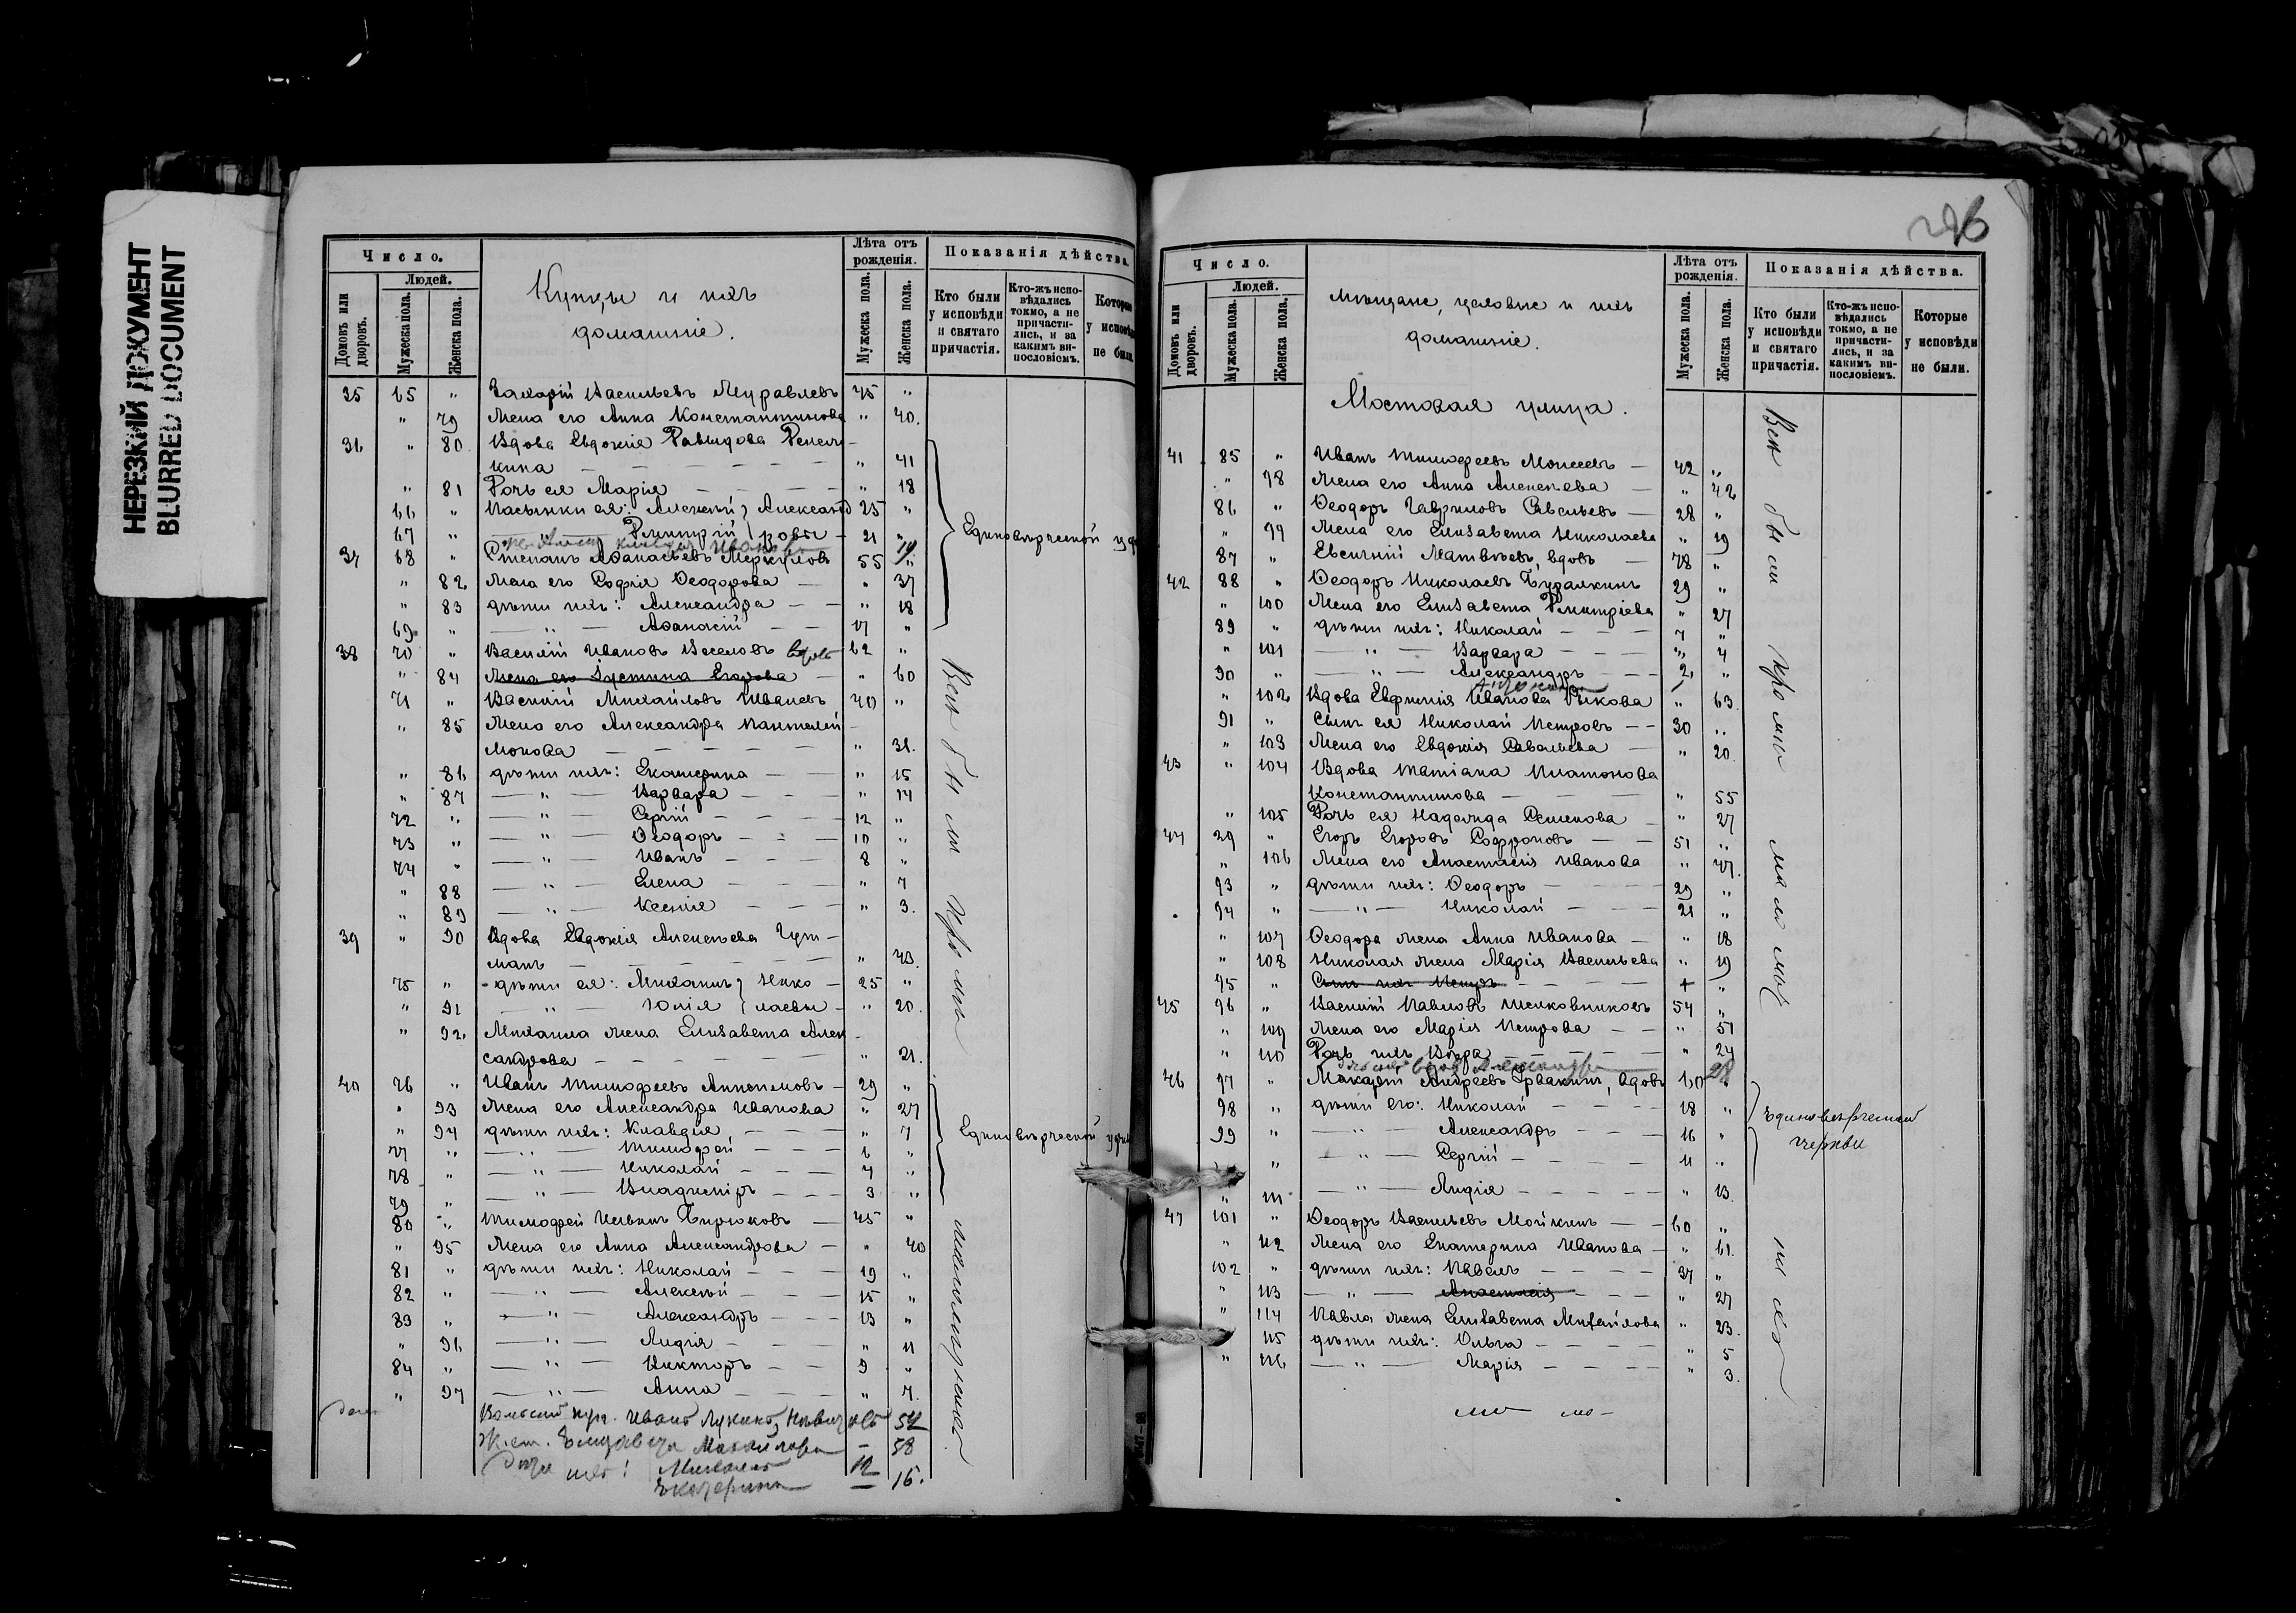 НЕРЕЗКИЙ ДОКУМЕНТ
BLURRED DOCUMENT
Число.
Людей.
Домовъ или дворовъ.
Мужеска пола.
Женска пола.
Купцы и ихъ
домашніе.
Лѣта отъ рожденія.
Мужеска пола.
Женска пола.
Показанія дѣйства.
Кто были у исповѣди и святаго причастія.
Кто-жъ исповѣдались токмо, а не причастились, и за какимъ винословіемъ.
Которые у исповѣди не были.
35 65 " Захарій Васильевъ Муравлевъ 45 "
" 79 Жена его Анна Константинова " 40.
36 " 80 Вдова Евдокія Давыдова
кина " 41
" 81 Дочь ея Марія " 18
66 " Пасынки ея: Алексѣй Александ 25 "
67 " " Димитрій ровы 21 "
37 68 " Степанъ Аѳанасьевъ Меркуловъ 55 "
" 82 Жена его Софія Ѳеодорова " 37
" 83 дѣти ихъ: Александра " 18
69 " " Аѳанасій 17 "
Единовѣрческой
38 70 " Василій Ивановъ Веселовъ вдовъ 62 "
" 84 Жена его Іустина Егорова " 60
71 " Василій Михайловъ Ивлиевъ 40 "
" 85 Жена его Александра Пантелей
монова " 31.
" 86 дѣти ихъ: Екатерина " 15
" 87 " Варвара " 14
72 " " Сергій 12 "
73 " " Ѳеодоръ 10 "
74 " " Иванъ 8 "
" 88 " Елена " 7
" 89 " Ксенія " 3.
39 " 90 Вдова Евдокія Алексѣева Гут-
манъ " 43.
75 " дѣти ея: Михаилъ Нико 25 "
" 91 " Юлія лаевы " 20.
" 92 Михаила жена Елизавета Алек
сандрова " 21.
40 76 " Иванъ Тимофеевъ Анисимовъ 29 "
" 93 Жена его Александра Иванова " 27
" 94 дѣти ихъ: Клавдія " 7
77 " " Тимофей 6 "
78 " " Николай 4 "
79 " " Владиміръ 3 "
Единовѣрческой
80 " Тимофей Бирюковъ 45 "
" 95 Жена его Анна Александрова " 40
81 " дѣти ихъ: Николай 19 "
82 " " Алексѣй 15 "
83 " " Александръ 13 "
" 96 " Лидія " 11
84 " " Викторъ 9 "
" 97 " Анна " 7.
Вольскій куп. Иванъ
Жен. Елизавета Михайлова 58
Дѣти ихъ: Михаилъ 12
Екатерина 16.
Всѣ были
296
Число.
Людей.
Домовъ или дворовъ.
Мужеска пола.
Женска пола.
Мѣщане, цеховые и ихъ
домашніе.
Лѣта отъ рожденія.
Мужеска пола.
Женска пола.
Показанія дѣйства.
Кто были у исповѣди и святаго причастія.
Кто-жъ исповѣдались токмо, а не причастились, и за какимъ винословіемъ.
Которые у исповѣди не были.
Мостовая улица.
41 85 " Иванъ Тимофеевъ Моисеевъ 42 "
" 98 Жена его Анна Алексѣева " 42
86 " Ѳеодоръ Гавриловъ Савельевъ 28 "
" 99 Жена его Елизавета Николаева " 19
87 " Евсигній Матвѣевъ, вдовъ 78 "
42 88 " Ѳеодоръ Николаевъ Будалкинъ 29 "
" 100 Жена его Елизавета Димитріева " 27
89 " дѣти ихъ: Николай 7 "
" 101 " Варвара " 4
90 " " Александръ 2 "
" 102 Вдова Евфимія Иванова Рыкова " 63.
91 " Сынъ ея Николай Петровъ 30 "
" 103 Жена его Евдокія Савельева " 20.
43 " 104 Вдова Татіана Платонова
Константинова " 55
" 105 Дочь ея Надежда Семенова " 27
44 " Егоръ Егоровъ Софроновъ 51 "
" 106 Жена его Анастасія Иванова " 47.
93 " дѣти ихъ: Ѳеодоръ 29 "
94 " " Николай 21 "
" 107 Ѳеодора жена Анна Иванова " 18
" 108 Николая жена Марія Васильева " 19
95 " Сынъ ихъ Петръ + "
45 96 " Василій Павловъ Шелковниковъ 54 "
" 109 Жена его Марія Петрова " 51
" 110 Дочь ихъ Вѣра " 24
46 97 " Макарій Андреевъ вдовъ 60 "
98 " дѣти его: Николай 18 "
99 " " Александръ 16 "
" " Сергій 11 "
" 111 " Лидія " 13.
Единовѣрческой
церкви
47 101 " Ѳеодоръ Васильевъ Мойкинъ 60 "
" 112 Жена его Екатерина Иванова " 61.
102 " дѣти ихъ: Павелъ 37 "
" 113 " Анастасія " 27
" 114 Павла жена Елизавета Михайлова " 23.
" 115 дѣти ихъ: Ольга " 5
" 116 " Марія " 3.
Всѣ были